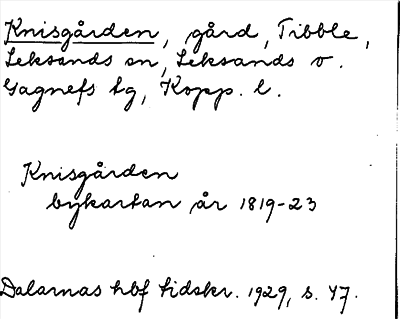 Knisgården, gård, Tibble,
Leksands sn, Leksands o.
Gagnefs tg, Kopp. l.
Knisgården
bykartan år 1819-23
Dalarnas hbf tidskr. 1929, s. 47.